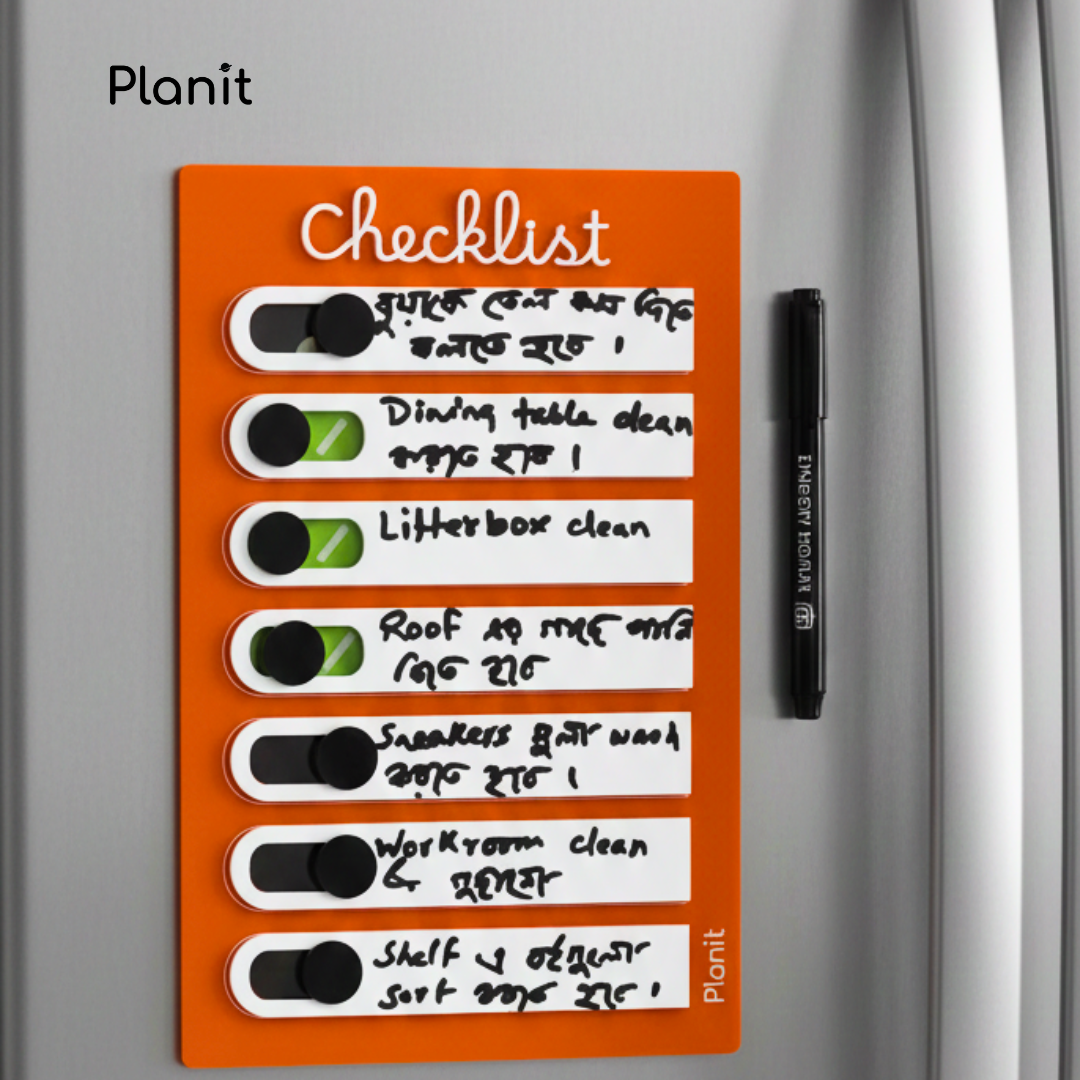 Planit
Checklist
বুয়াকে তেল কম দিতে
বলতে হবে।
Dining table clean
করতে হবে।
Litterbox clean
Roof এর গাছে পানি
দিতে হবে
Sneakers গুলা wash
করতে হবে।
Workroom clean
& গুছানো
Shelf এ বইগুলো
sort করতে হবে।
Planit